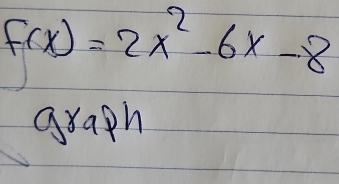 f(x) = 2x² - 6x - 8
graph